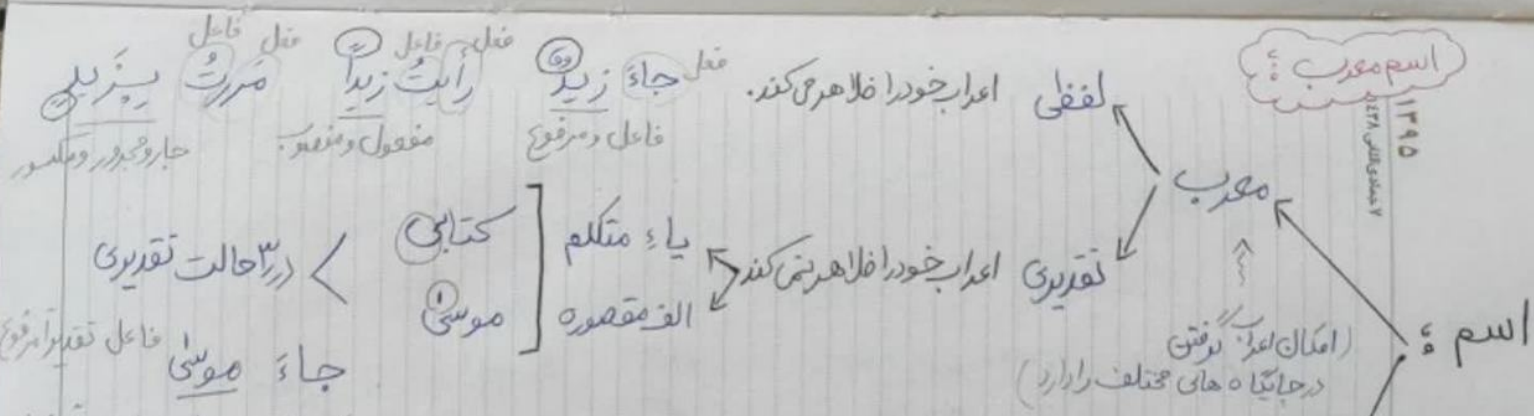 اسم معرب :
۱۳۹۵
۷ جمادی الثانی ۱۴۳۸
اسم :
معرب
(امکان اعراب گرفتن
در جایگاه های مختلف را دارد)
لفظی اعراب خود را ظاهر می کند.
فعل
جاءَ زیدٌ
فاعل و مرفوع
فعل فاعل
رأیتُ زیداً
مفعول و منصوب
فعل فاعل
مررتُ بِزَیدٍ
جار و مجرور و مکسور
تقدیری اعراب خود را ظاهر نمی کند
یاءِ متکلم کتابی
الف مقصوره موسیٰ
در ۳ حالت تقدیری
جاءَ موسیٰ فاعل تقدیراً مرفوع